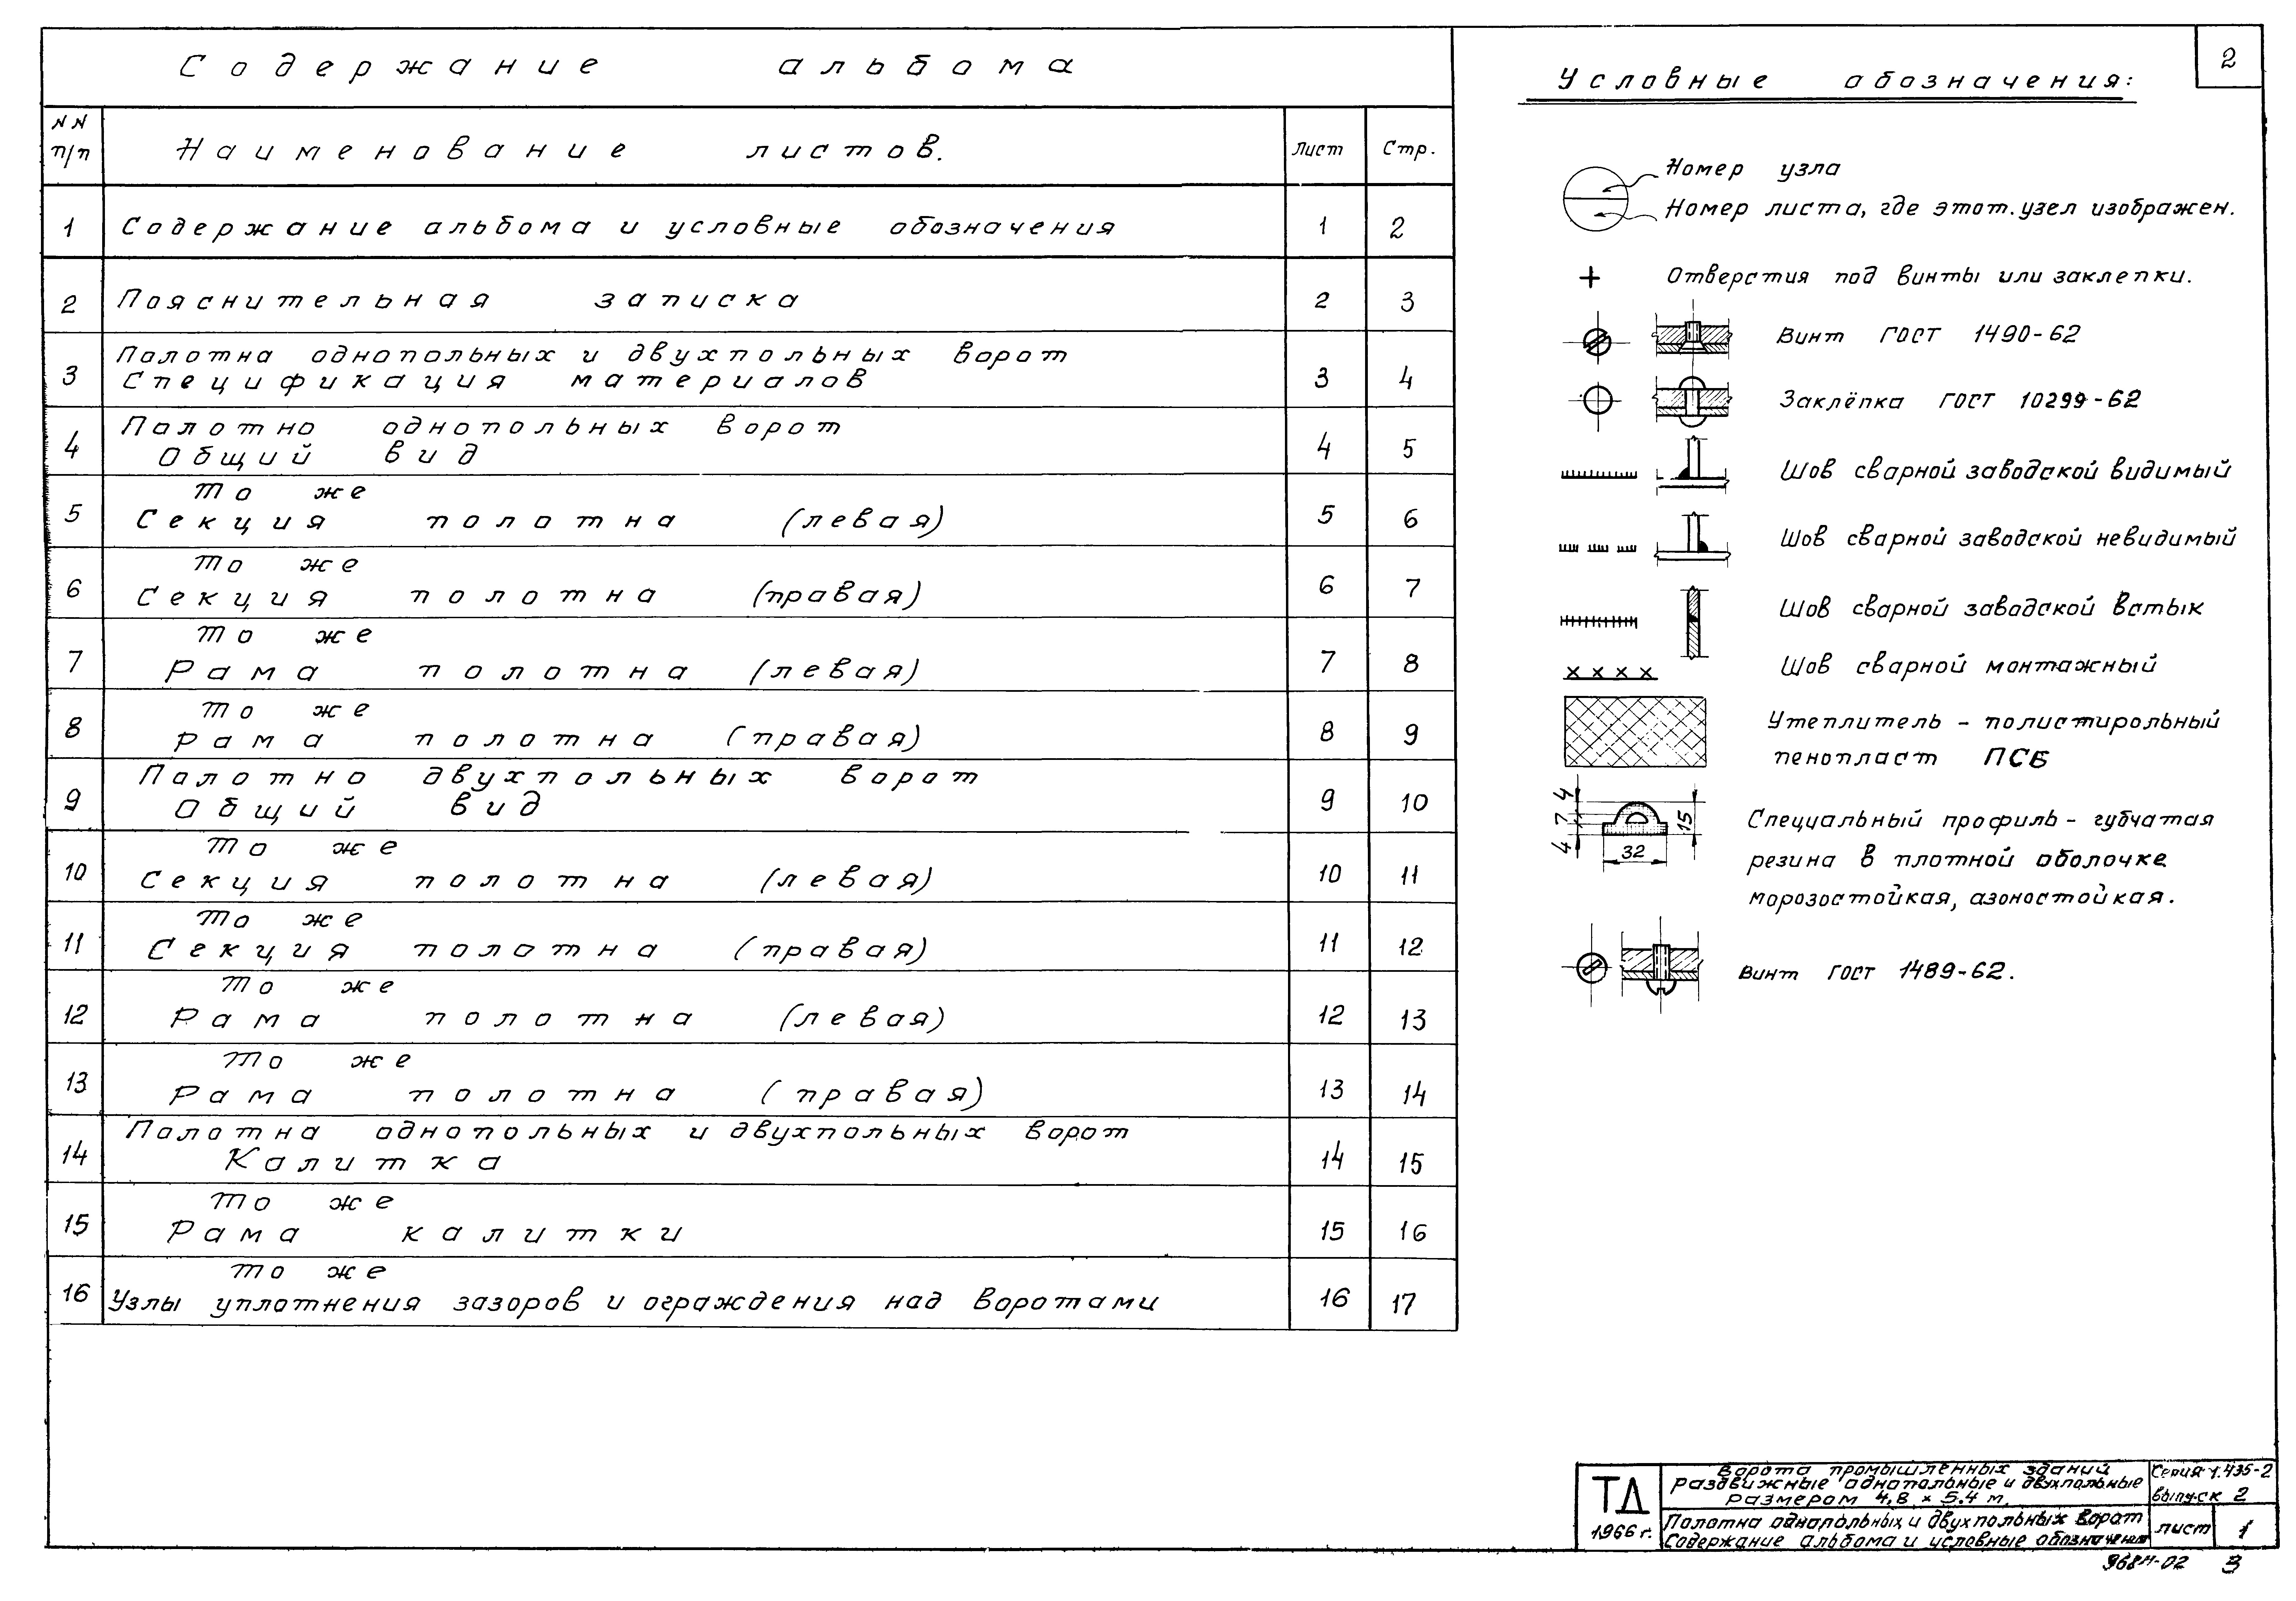 Содержание альбома
NN п/п Наименование листов. Лист Стр.
1 Содержание альбома и условные обозначения 1 2
2 Пояснительная записка 2 3
Полотна однопольных и двухпольных ворот
3 Спецификация материалов 3 4
Полотно однопольных ворот
4 Общий вид 4 5
То же
5 Секция полотна (левая) 5 6
То же
6 Секция полотна (правая) 6 7
То же
7 Рама полотна (левая) 7 8
То же
8 Рама полотна (правая) 8 9
Полотно двухпольных ворот
9 Общий вид 9 10
То же
10 Секция полотна (левая) 10 11
То же
11 Секция полотна (правая) 11 12
То же
12 Рама полотна (левая) 12 13
То же
13 Рама полотна (правая) 13 14
Полотна однопольных и двухпольных ворот
14 Калитка 14 15
То же
15 Рама калитки 15 16
То же
16 Узлы уплотнения зазоров и ограждения над воротами 16 17
2
Условные обозначения:
Номер узла
Номер листа, где этот.узел изображен.
Отверстия под винты или заклепки.
Винт ГОСТ 1490-62
Заклёпка ГОСТ 10299-62
Шов сварной заводской видимый
Шов сварной заводской невидимый
Шов сварной заводской встык
Шов сварной монтажный
Утеплитель - полистирольный
пенопласт ПСБ
4 7 4 15 32
Специальный профиль - губчатая
резина в плотной оболочке
морозостойкая, азоностойкая.
Винт ГОСТ 1489-62.
ТД
1966 г.
Ворота промышленных зданий
раздвижные однопольные и двухпольные
размером 4,8 x 5.4 м.
Серия 1.435-2
выпуск 2
Полотна однопольных и двухпольных ворот
Содержание альбома и условные обозначения
лист 1
968И-02 3